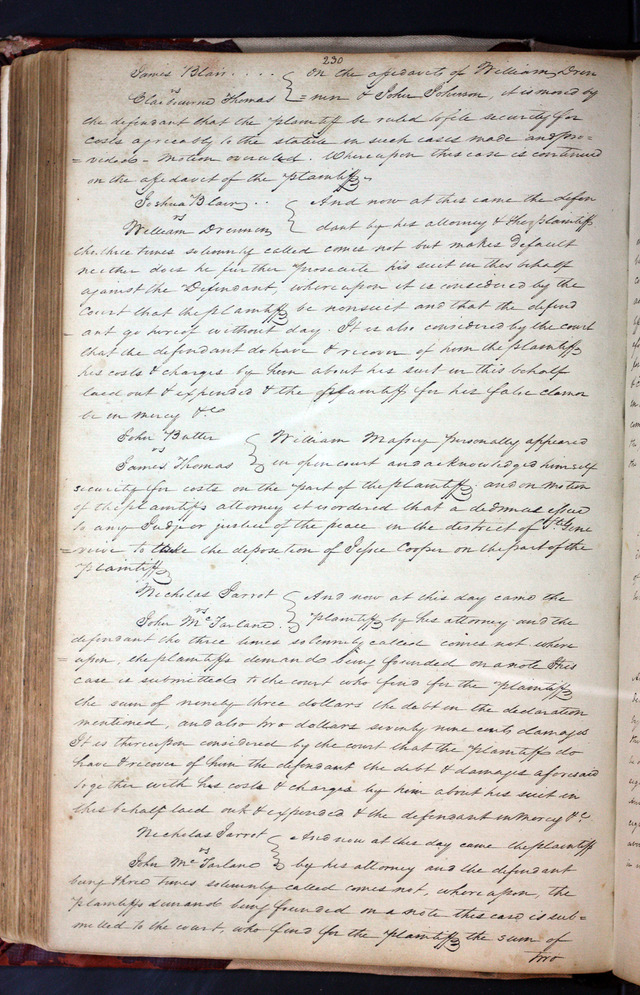 230
James Blair . . . . { On the affidavits of William Dren
vs
Claibourne Thomas { = nen & John Johnson, it is moved by
the defendant that the plaintiff be ruled to file security for
costs agreeably to the statute in such cases made and pro=
= vided - Motion overuled. Whereupon this case is continued
on the affidavit of the plaintiff.
Joshua Blair . . { And now at this came the defen
vs
William Drennen { dant by his attorney & the plaintiff
tho, three times solemnly called comes not but makes default
neither does he further prosecute his suit in this behalf
against the Defendant, whereupon it is considered by the
Court that the plaintiff be nonsuit and that the defend
- ant go hereof without day. It is also considered by the court
that the defendant do have & recover of him the plaintiff
his costs & charges by him about his suit in this behalf
laid out & expended & the plaintiff for his false clamor
be in mercy &c
John Butter { William Massey personally appeared
vs
James Thomas { in open court and acknowledged himself
security for costs on the part of the plaintiff, and on motion
of the plaintiffs attorney it is ordered that a dedimus issue
to any Judge or justice of the peace in the district of Ste Gene
= vieve to take the deposition of Jesse Cooper on the part of the
plaintiff
Nicholas Jarrot { And now at this day came the
vs
John McFarlane . { plaintiff by his attorney and the
defendant tho three times solemnly called comes not. where
= upon, the plaintiffs demand being founded on a note this
case is submitted to the court who find for the plaintiff
the sum of ninety three dollars the debt in the declaration
mentioned, and also two dollars seventy nine cents damages
It is thereupon considered by the court that the plaintiff do
have & recover of him the defendant the debt & damages aforesaid
together with his costs & charges by him about his suit in
this behalf laid out & expended & the defendant in Mercy &c
Nicholas Jarrot { And now at this day came the plaintiff
vs
John McFarlane { by his attorney and the defendant
being three times solemnly called comes not, whereupon, the
plaintiffs demand being founded on a note this case is sub=
mitted to the court, who find for the plaintiff the sum of
two